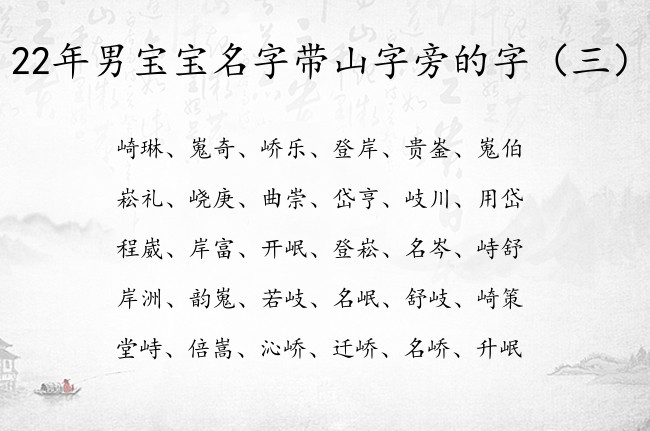 22年男宝宝名字带山字旁的字（三）
崎琳、嵬奇、峤乐、登岸、贵崟、嵬伯
崧礼、峣庚、曲崇、岱亨、岐川、用岱
程崴、岸富、开岷、登崧、名岑、峙舒
岸洲、韵嵬、若岐、名岷、舒岐、崎策
堂峙、倍嵩、沁峤、迁峤、名峤、升岷